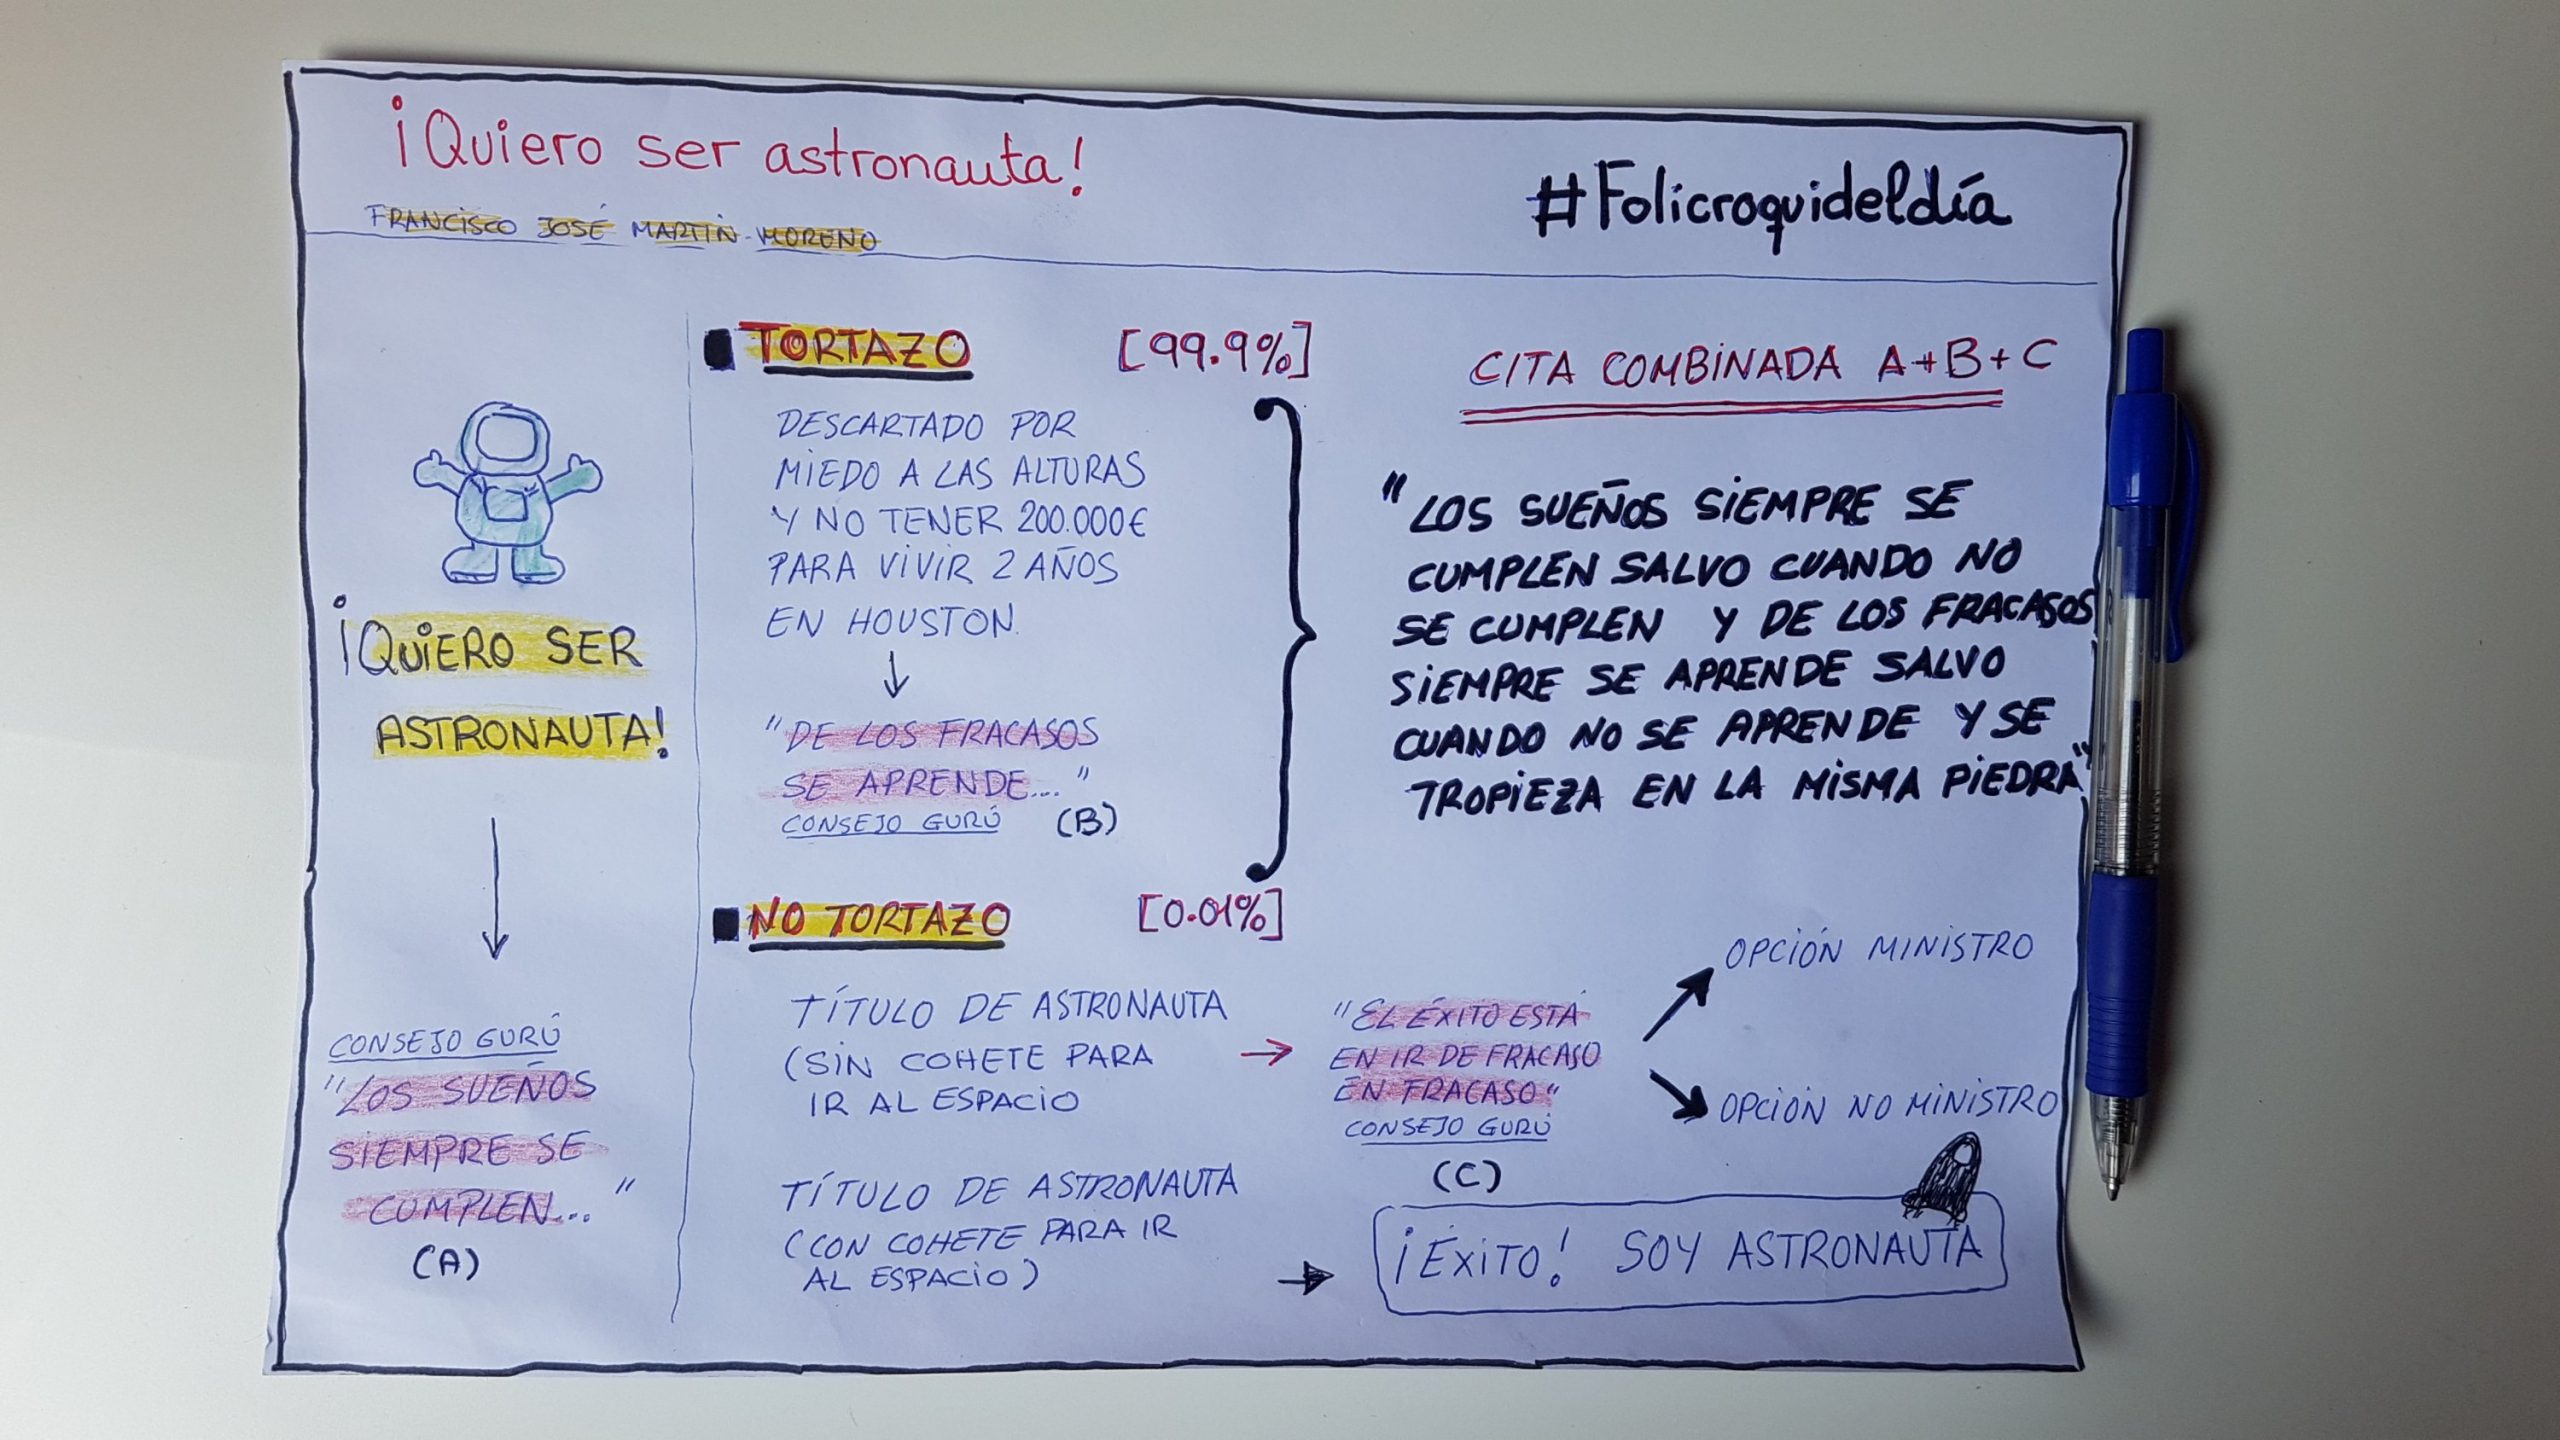 ¡Quiero ser astronauta!
FRANCISCO JOSÉ MARTÍN-MORENO
#Folicroquideldía
¡QUIERO SER
ASTRONAUTA!
CONSEJO GURÚ
"LOS SUEÑOS
SIEMPRE SE
CUMPLEN..."
(A)
TORTAZO [99.9%]
DESCARTADO POR
MIEDO A LAS ALTURAS
Y NO TENER 200.000€
PARA VIVIR 2 AÑOS
EN HOUSTON.
"DE LOS FRACASOS
SE APRENDE..."
CONSEJO GURÚ (B)
NO TORTAZO [0.01%]
TÍTULO DE ASTRONAUTA
(SIN COHETE PARA
IR AL ESPACIO
TÍTULO DE ASTRONAUTA
(CON COHETE PARA IR
AL ESPACIO)
CITA COMBINADA A+B+C
"LOS SUEÑOS SIEMPRE SE
CUMPLEN SALVO CUANDO NO
SE CUMPLEN Y DE LOS FRACASOS
SIEMPRE SE APRENDE SALVO
CUANDO NO SE APRENDE Y SE
TROPIEZA EN LA MISMA PIEDRA"
"EL ÉXITO ESTÁ
EN IR DE FRACASO
EN FRACASO"
CONSEJO GURÚ
(C)
OPCIÓN MINISTRO
OPCIÓN NO MINISTRO
¡ÉXITO! SOY ASTRONAUTA